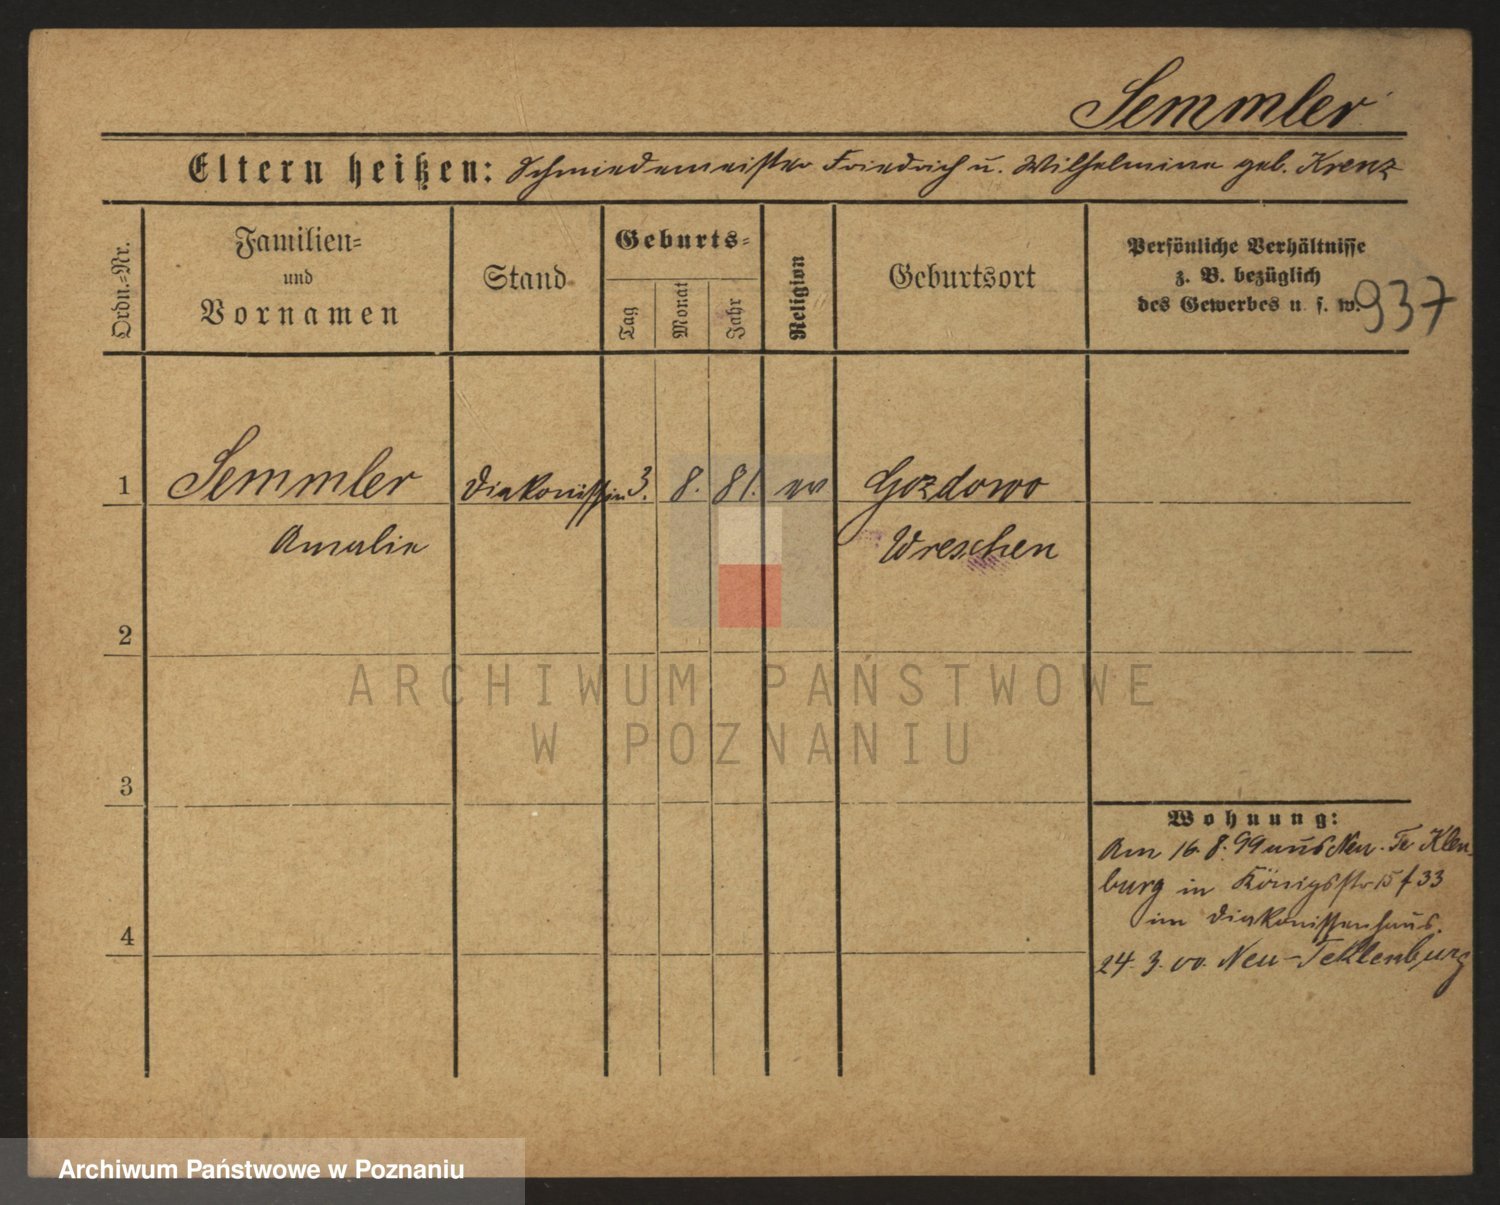 Semmler
Eltern heißen: Schmiedemeister Friedrich u. Wilhelmine geb. Krenz
Ordn.-Nr.
Familien-
und
Vornamen
Stand
Geburts-
Tag
Monat
Jahr
Religion
Geburtsort
Persönliche Verhältnisse
z. B. bezüglich
des Gewerbes u. s. w.
937
1 Semmler Diakonissin 3. 8. 81. ev Gozdowo
Amalie Wreschen
2
3
4
Wohnung:
Am 16. 8. 99 aus Neu-Teklen-
burg in Königsstr 33
im Diakonissenhaus.
24. 3. 00. Neu-Teklenburg
ARCHIWUM PAŃSTWOWE
W POZNANIU
Archiwum Państwowe w Poznaniu